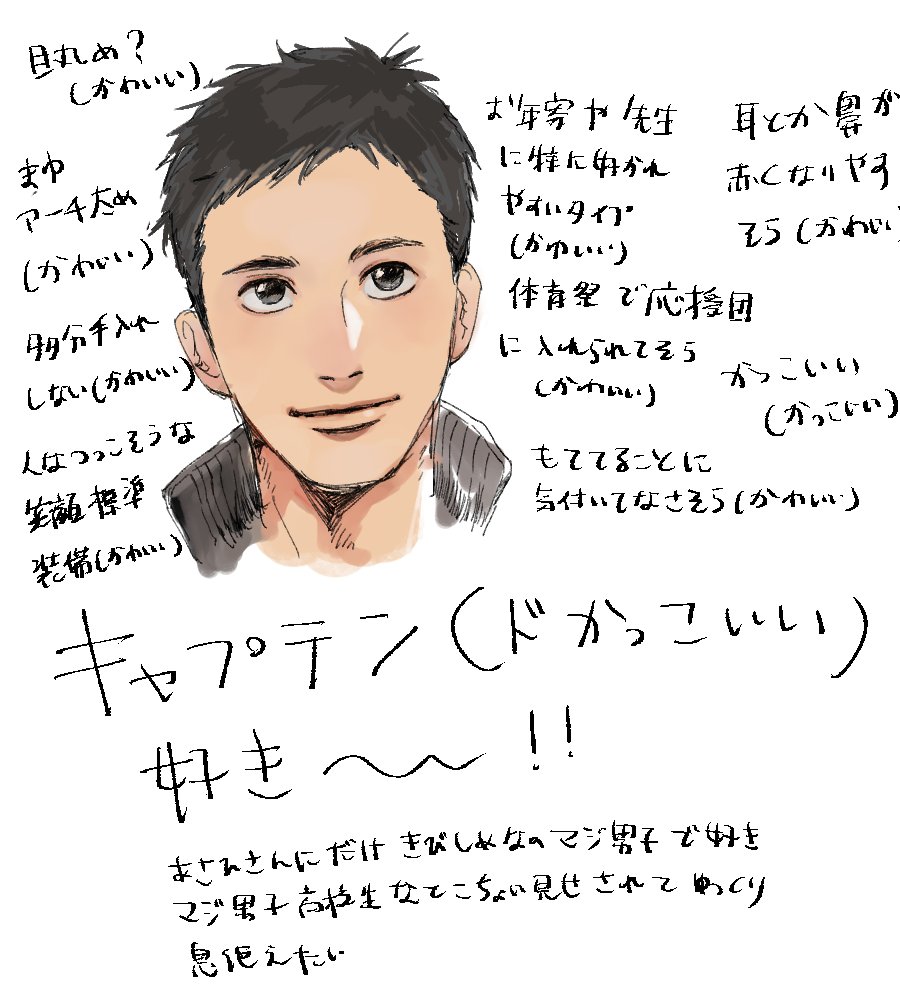 目丸め?
(かわいい)
まゆ
アーチ太め
(かわいい)
多分手入れ
しない(かわいい)
人なつっこそうな
笑顔標準
装備(かわいい)
お年寄や先生
に特に好かれ
やすいタイプ
(かわいい)
体育祭で応援団
に入れられてそう
(かわいい)
もててることに
気付いてなさそう(かわいい)
耳とか鼻が
赤くなりやす
そう(かわいい)
かっこいい
(かっこいい)
キャプテン(ドかっこいい)
好き〜!!
あさひさんにだけきびしめなのマジ男子で好き
マジ男子高校生なとこちょい見せされてゆっくり
息絶えたい